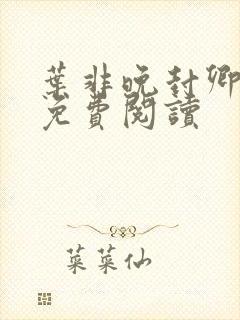 葉非晚封卿
免費閱讀
菜菜仙